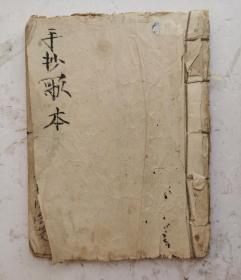 手抄歌本